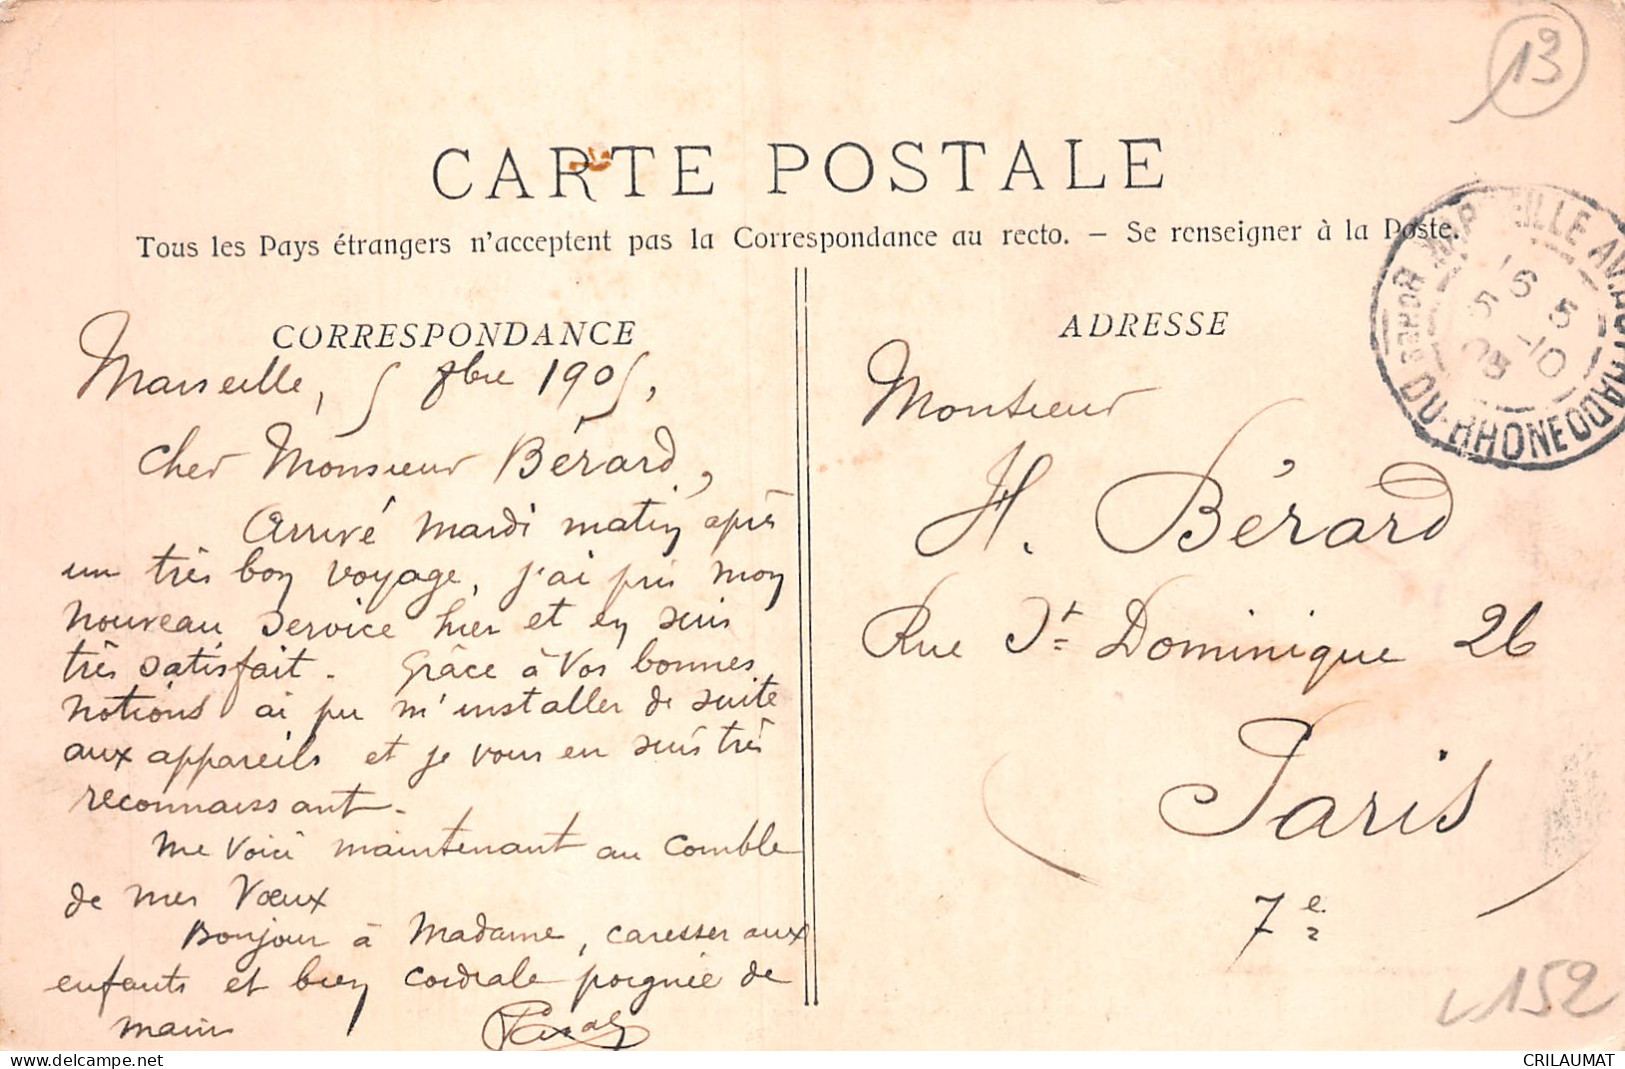 13
CARTE POSTALE
Tous les Pays étrangers n'acceptent pas la Correspondance au recto. – Se renseigner à la Poste.
CORRESPONDANCE
Marseille, 5 8bre 1905,
Cher Monsieur Bérard,
Arrivé mardi matin après
un très bon voyage, j'ai pris mon
nouveau service hier et en suis
très satisfait. Grâce à vos bonnes
notions ai pu m'installer de suite
aux appareils et je vous en suis très
reconnaissant.
Me voici maintenant au comble
de mes Vœux
Bonjour à Madame, caresser aux
enfants et bien cordiale poignée de
main
ADRESSE
Monsieur
H. Bérard
Rue St Dominique 26
Paris
7e
BOUCHES DU-RHONE
16
5 5
-10
05
152
CRILAUMAT